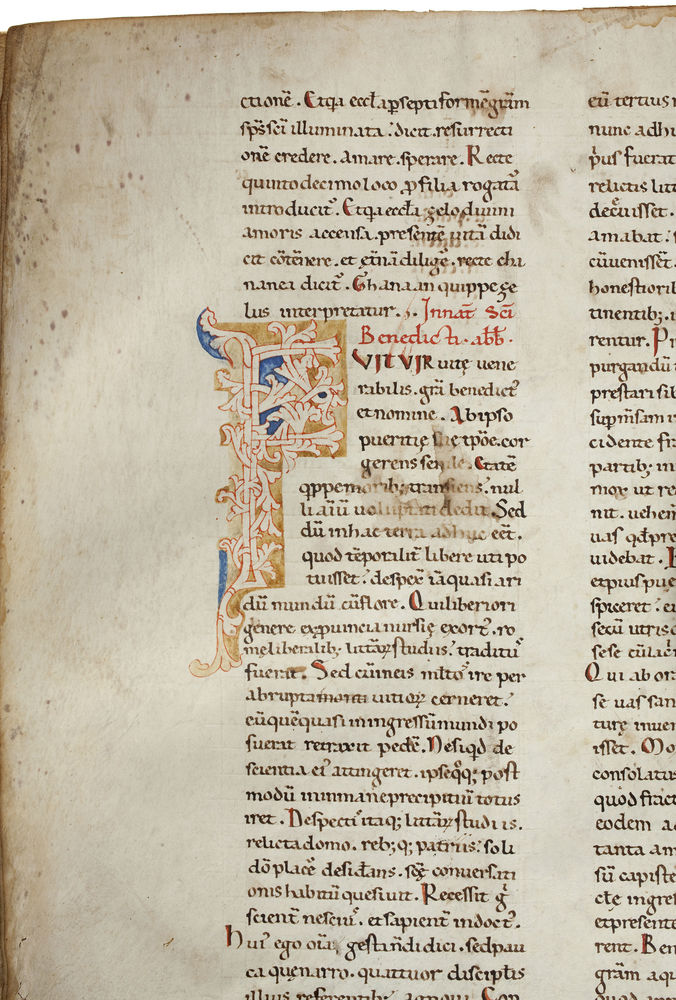 ctionē. Et q̄a eccl̄a p̱ septiformē gr̄am
sp̄s sc̄i illuminata. dicit. resurrecti
onē credere. amare. sperare. Recte
quinto decimo loco p̱ filia rogatā
introducit᷑. Et q̄a eccl̄a zelo diuini
amoris accensa. presentē uitā didi
cit cōtēnere. et et̄nā diligē. recte cha
nanea dicit᷑. Chanaan quippe ze
lus interpretatur. In nat̄ Sc̄i
Benedicti. abb̄.
FVIT VIR uitę uene
rabilis. gr̄a benedict᷒
et nomine. Ab ipso
pueritię suę tp̄oē. cor
gerens senile. Etatē
q̱ppe morib; transiens. nul
li aīū uoluptati dedit. Sed
dū in hac terra adhuc eēt.
quod tēporalit̄ libere uti po
tuisset. despexc̄ iā quasi ari
dū mundū cū flore. Qui liberiori
genere ex puincia nursię exort᷒. ro
mę liberalib; litt̄aꝝ studiis. traditu᷒
fuerat. Sed cū in eis mlt̄o᷒ ire per
abrupta uitioꝝ cerneret.
eū quē quasi in ingressū mundi po
suerat retraxit pedē. Ne si q̇d de
scientia ei᷒ attingeret. ipse q̊q; post
modū in inmane precipitiū totus
iret. Despecti᷒ itaq; litt̄aꝝ studiis.
relicta domo. reb; q; patris. soli
dō placē desidans. sc̄ę conuersati
onis habitū quesiuit. Recessit gͥ
scient̄ nesci᷒. et sapient̄ indoct᷒.
hui᷒ ego om̄ia gesta n̄ didici. sed pau
ca quę narro. quattuor discipl̄is
illius referentib; agnoui. Con
eū tertius
nunc adhu
p̊us fuerat
relictis litt
decr̄uisset.
amabat.
cūuenissēt.
honestiorib
tinentib;.
rentur. Pr
purgandū
prestari sib
supm̄sam
cidente fr
partib; in
mox ut re
nit. uehem
uas q̇d pre
uidebat.
et pius pue
spiceret. ei
secū utrisq
sese cū lac̄
Qui ab or
se uas san
turę inuen
isset. Mo
consolatus
quod fract
eodem a
tanta am
sū capiste
clę ingres
et presente
rent. Ben
gr̄am aqu